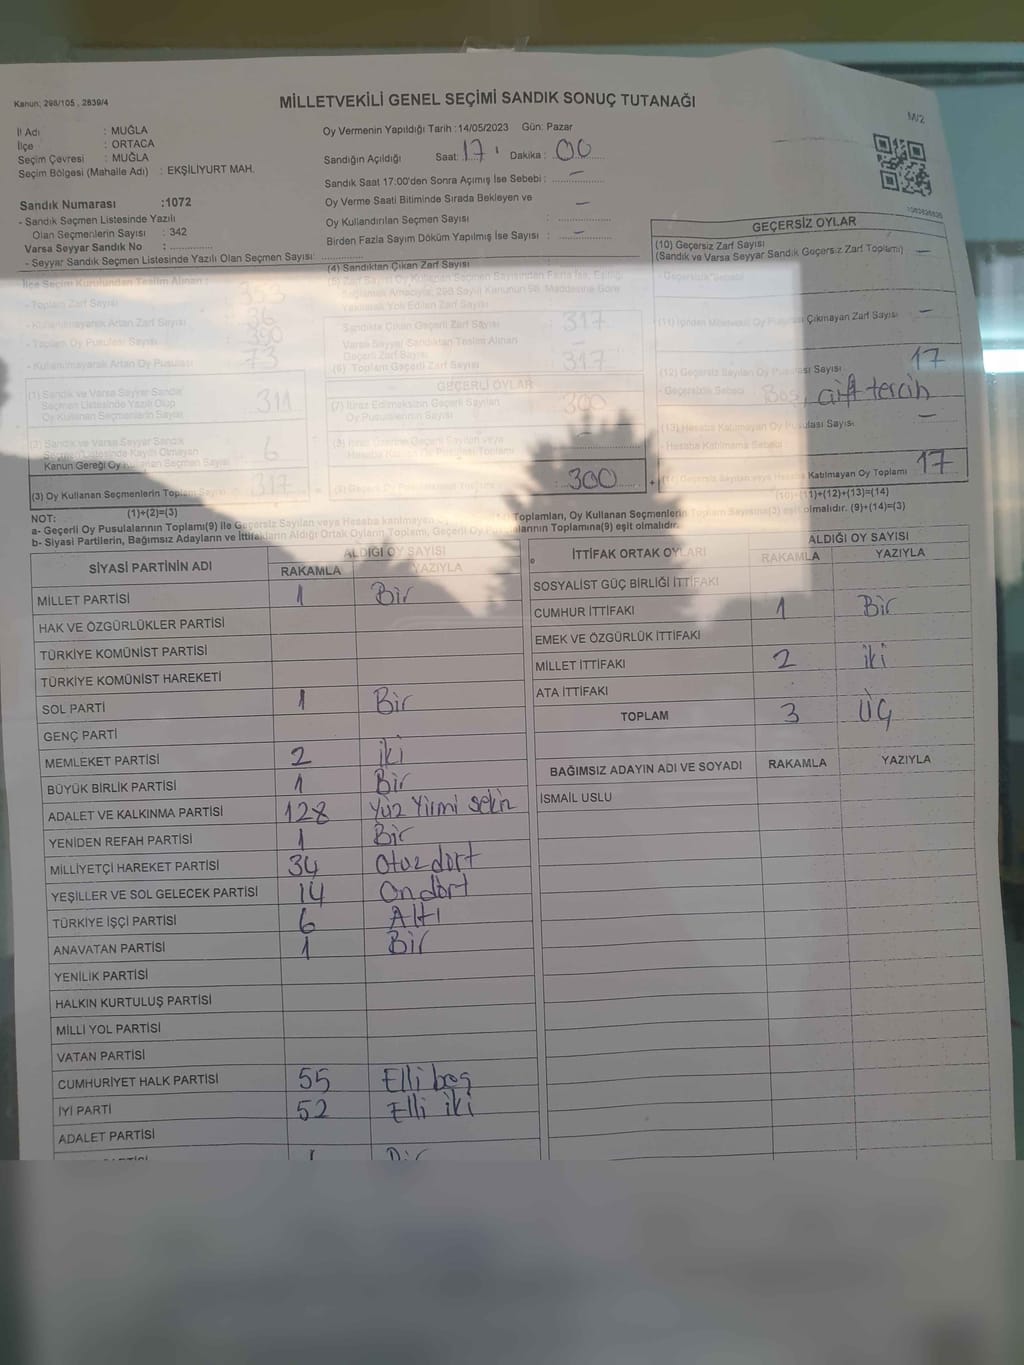 Kanun; 298/105 , 2839/4
MİLLETVEKİLİ GENEL SEÇİMİ SANDIK SONUÇ TUTANAĞI
M/2
İl Adı : MUĞLA
İlçe : ORTACA
Seçim Çevresi : MUĞLA
Seçim Bölgesi (Mahalle Adı) : EKŞİLİYURT MAH.
Sandık Numarası :1072
- Sandık Seçmen Listesinde Yazılı
Olan Seçmenlerin Sayısı : 342
Varsa Seyyar Sandık No : ..............
- Seyyar Sandık Seçmen Listesinde Yazılı Olan Seçmen Sayısı: ..............
Oy Vermenin Yapıldığı Tarih :14/05/2023 Gün: Pazar
Sandığın Açıldığı Saat: 17 Dakika : 00
Sandık Saat 17:00'den Sonra Açımış İse Sebebi : –
Oy Verme Saati Bitiminde Sırada Bekleyen ve
Oy Kullandırılan Seçmen Sayısı : –
Birden Fazla Sayım Döküm Yapılmış İse Sayısı : –
İlçe Seçim Kurulundan Teslim Alınan :
- Toplam Zarf Sayısı : 353
- Kullanılmayarak Artan Zarf Sayısı : 36
- Toplam Oy Pusulası Sayısı
- Kullanılmayarak Artan Oy Pusulası : 73
(1) Sandık ve Varsa Seyyar Sandık
Seçmen Listesinde Yazılı Olup
Oy Kullanan Seçmenlerin Sayısı : 311
(2) Sandık ve Varsa Seyyar Sandık
Seçmen Listesinde Kayıtlı Olmayan
Kanun Gereği Oy Kullanan Seçmen Sayısı : 6
(3) Oy Kullanan Seçmenlerin Toplam Sayısı : 317
(1)+(2)=(3)
(4) Sandıktan Çıkan Zarf Sayısı
Sandıkta Çıkan Geçerli Zarf Sayısı : 317
Varsa Seyyar Sandıktan Teslim Alınan
Geçerli Zarf Sayısı : –
(6) Toplam Geçerli Zarf Sayısı : 317
GEÇERLİ OYLAR
(7) İtiraz Edilmeksizin Geçerli Sayılan
Oy Pusulalarının Sayısı : 300
300
GEÇERSİZ OYLAR
(10) Geçersiz Zarf Sayısı
(Sandık ve Varsa Seyyar Sandık Geçersiz Zarf Toplamı) –
- Geçersizlik Sebebi
Çıkmayan Zarf Sayısı –
(12) Geçersiz Sayılan Oy Pusulası Sayısı 17
- Geçersizlik Sebebi Boş, çift tercih
(13) Hesaba Katılmayan Oy Pusulası Sayısı –
- Hesaba Katılmama Sebebi
(14) Geçersiz Sayılan veya Hesaba Katılmayan Oy Toplamı 17
(10)+(11)+(12)+(13)=(14)
NOT:
a- Geçerli Oy Pusulalarının Toplamı(9) ile Geçersiz Sayılan veya Hesaba katılmayan Toplamları, Oy Kullanan Seçmenlerin Toplam Sayısına(3) eşit olmalıdır. (9)+(14)=(3)
b- Siyasi Partilerin, Bağımsız Adayların ve İttifakların Aldığı Ortak Oyların Toplamı, Geçerli Oy Pusulalarının Toplamına(9) eşit olmalıdır.
SİYASİ PARTİNİN ADI ALDIĞI OY SAYISI
RAKAMLA YAZIYLA
MİLLET PARTİSİ 1 Bir
HAK VE ÖZGÜRLÜKLER PARTİSİ
TÜRKİYE KOMÜNİST PARTİSİ
TÜRKİYE KOMÜNİST HAREKETİ
SOL PARTİ 1 Bir
GENÇ PARTİ
MEMLEKET PARTİSİ 2 iki
BÜYÜK BİRLİK PARTİSİ 1 Bir
ADALET VE KALKINMA PARTİSİ 128 Yüz Yirmi sekiz
YENİDEN REFAH PARTİSİ 1 Bir
MİLLİYETÇİ HAREKET PARTİSİ 34 Otuzdört
YEŞİLLER VE SOL GELECEK PARTİSİ 14 Ondört
TÜRKİYE İŞÇİ PARTİSİ 6 Altı
ANAVATAN PARTİSİ 1 Bir
YENİLİK PARTİSİ
HALKIN KURTULUŞ PARTİSİ
MİLLİ YOL PARTİSİ
VATAN PARTİSİ
CUMHURİYET HALK PARTİSİ 55 Elli beş
İYİ PARTİ 52 Elli iki
ADALET PARTİSİ
İTTİFAK ORTAK OYLARI ALDIĞI OY SAYISI
RAKAMLA YAZIYLA
SOSYALİST GÜÇ BİRLİĞİ İTTİFAKI
CUMHUR İTTİFAKI 1 Bir
EMEK VE ÖZGÜRLÜK İTTİFAKI
MİLLET İTTİFAKI 2 iki
ATA İTTİFAKI
TOPLAM 3 ÜÇ
BAĞIMSIZ ADAYIN ADI VE SOYADI RAKAMLA YAZIYLA
İSMAİL USLU